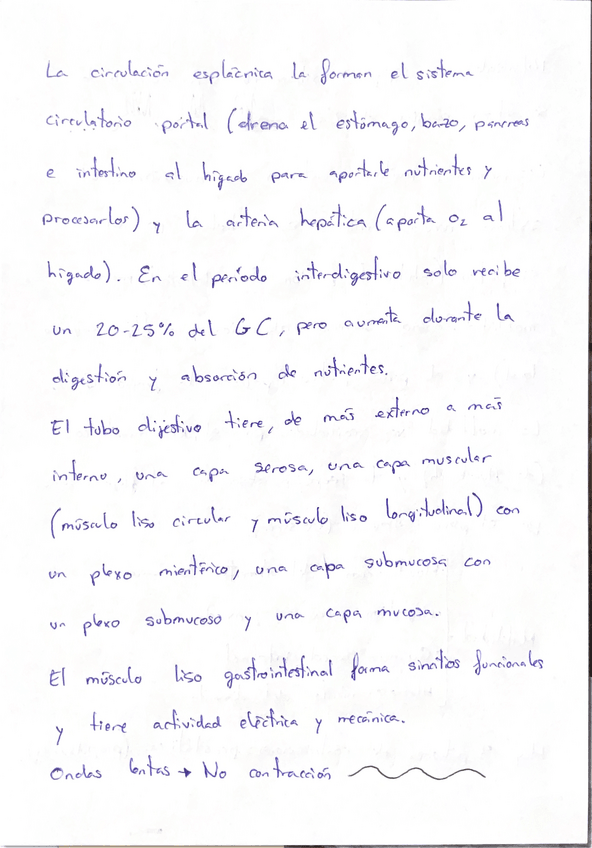 La circulación esplácnica la forman el sistema
circulatorio portal (drena el estómago, bazo, páncreas
e intestino al hígado para aportarle nutrientes y
procesarlos) y la arteria hepática (aporta O2 al
hígado). En el período interdigestivo solo recibe
un 20-25% del GC, pero aumenta durante la
digestión y absorción de nutrientes.
El tubo dijestivo tiene, de más externo a más
interno, una capa serosa, una capa muscular
(músculo liso circular y músculo liso longitudinal) con
un plexo mientérico, una capa submucosa con
un plexo submucoso y una capa mucosa.
El músculo liso gastrointestinal forma sincitios funcionales
y tiene actividad eléctrica y mecánica.
Ondas lentas → No contracción